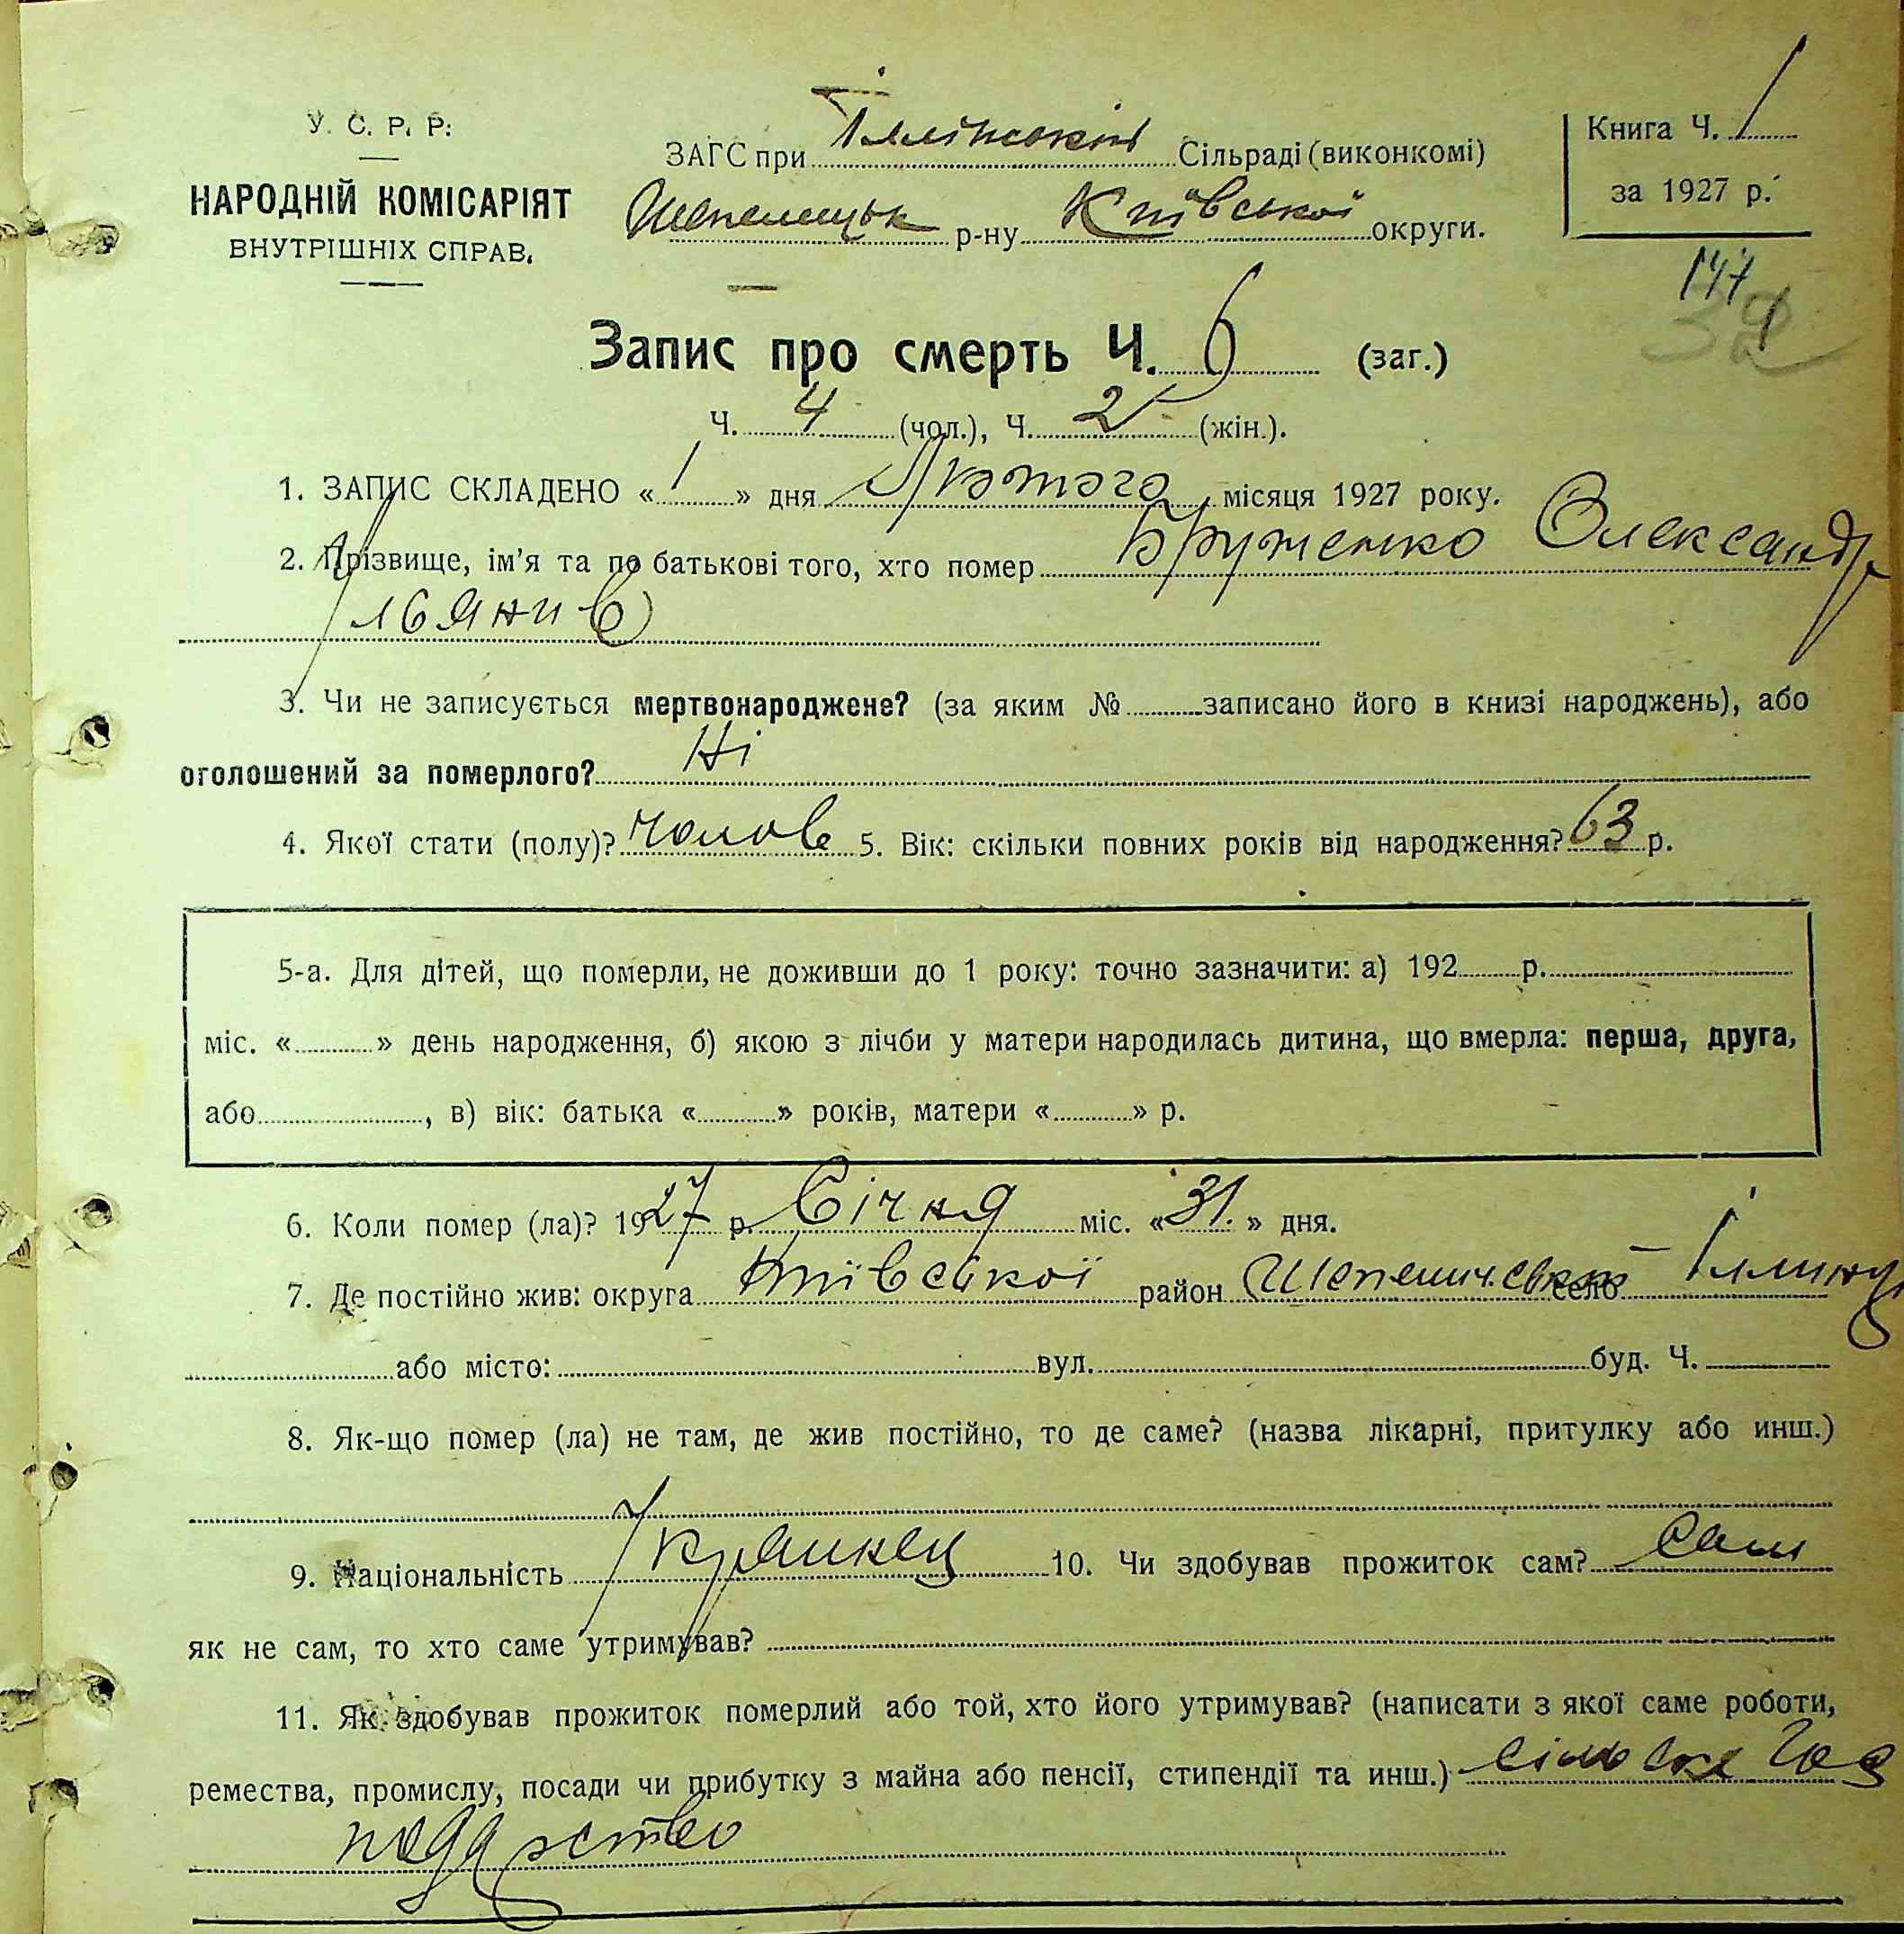 У. С. Р. Р.
НАРОДНІЙ КОМІСАРІЯТ
ВНУТРІШНІХ СПРАВ.
ЗАГС при Іллінській Сільраді (виконкомі)
Шепелицьк р-ну Київської округи.
Книга Ч. 1
за 1927 р.
147
Запис про смерть Ч. 6 (заг.)
Ч. 4 (чол.), Ч. 2 (жін.).
1. ЗАПИС СКЛАДЕНО «1» дня Лютого місяця 1927 року.
2. Прізвище, ім'я та по батькові того, хто помер Бруженко Олександр
Ульянив
3. Чи не записується мертвонароджене? (за яким № записано його в книзі народжень), або
оголошений за померлого? Ні
4. Якої стати (полу)? Чолов 5. Вік: скільки повних років від народження? 63 р.
5-а. Для дітей, що померли, не доживши до 1 року: точно зазначити: а) 192 р.
міс. « » день народження, б) якою з лічби у матери народилась дитина, що вмерла: перша, друга,
або , в) вік: батька « » років, матери « » р.
6. Коли помер (ла)? 1927 р. Січня міс. «31.» дня.
7. Де постійно жив: округа Київської район село Іллинц
або місто: вул. буд. Ч.
8. Як-що помер (ла) не там, де жив постійно, то де саме? (назва лікарні, притулку або инш.)
9. Національність Українец 10. Чи здобував прожиток сам? Сам
як не сам, то хто саме утримував?
11. Як здобував прожиток померлий або той, хто його утримував? (написати з якої саме роботи,
ремества, промислу, посади чи прибутку з майна або пенсії, стипендії та инш.) сільське Гос
подарство